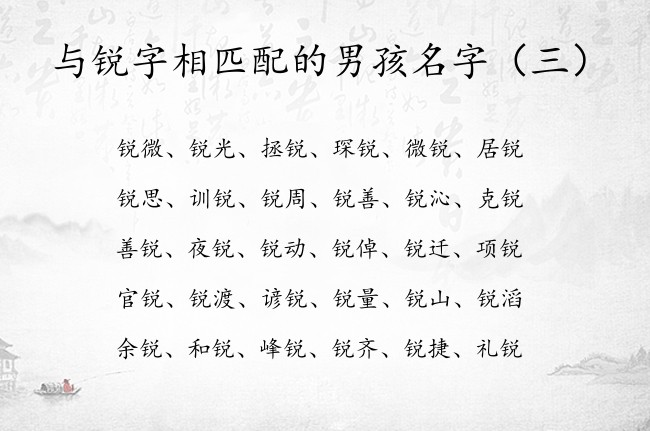 与锐字相匹配的男孩名字（三）
锐微、锐光、拯锐、琛锐、微锐、居锐
锐思、训锐、锐周、锐善、锐沁、克锐
善锐、夜锐、锐动、锐倬、锐迁、项锐
官锐、锐渡、谚锐、锐量、锐山、锐滔
余锐、和锐、峰锐、锐齐、锐捷、礼锐